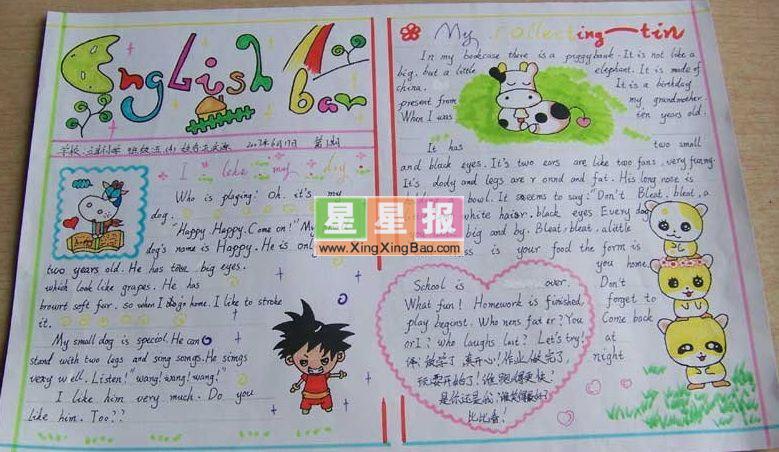 English bar
2007年6月17日
I like my dog
Who is playing? Oh. it's my
dog.
"Happy Happy. Come on!" My
dog's name is Happy. He is only
two years old. He has two big eyes.
which look like grapes. He has
browrt soft fur. so when I go home. I like to stroke
it.
My small dog is special. He can
stand with two legs and sing songs. He sings
very well. Listen! "wang! wang! wang!"
I like him very much. Do you
like him. Too??
My collecting—tin
In my bookcase there is a piggybank. It is not like a
big. but a little elephant. It is made of
china. It is a birthday
present from my grandmother.
When I was ten years old.
It has two small
and black eyes. It's two ears are like two fans. very funny.
It's dody and legs are rond and fat. His long nose is
bowl. It seems to say: "Don't Bleat. bleat. a
white hair. black eyes Every dog
big and by. Bleat. bleat. alittle
is your food the form is
you home.
Don't
forget to
Come back
at
night
School is over.
What fun! Homework is finished.
play beginst. Who runs faster? You
or I? who laughs last? Let's try!
译: 放学了 真开心! 作业做完了.
玩耍开始了! 谁跑得更快?
是你还是我?
比比看!
星星报
www.XingXingBao.com